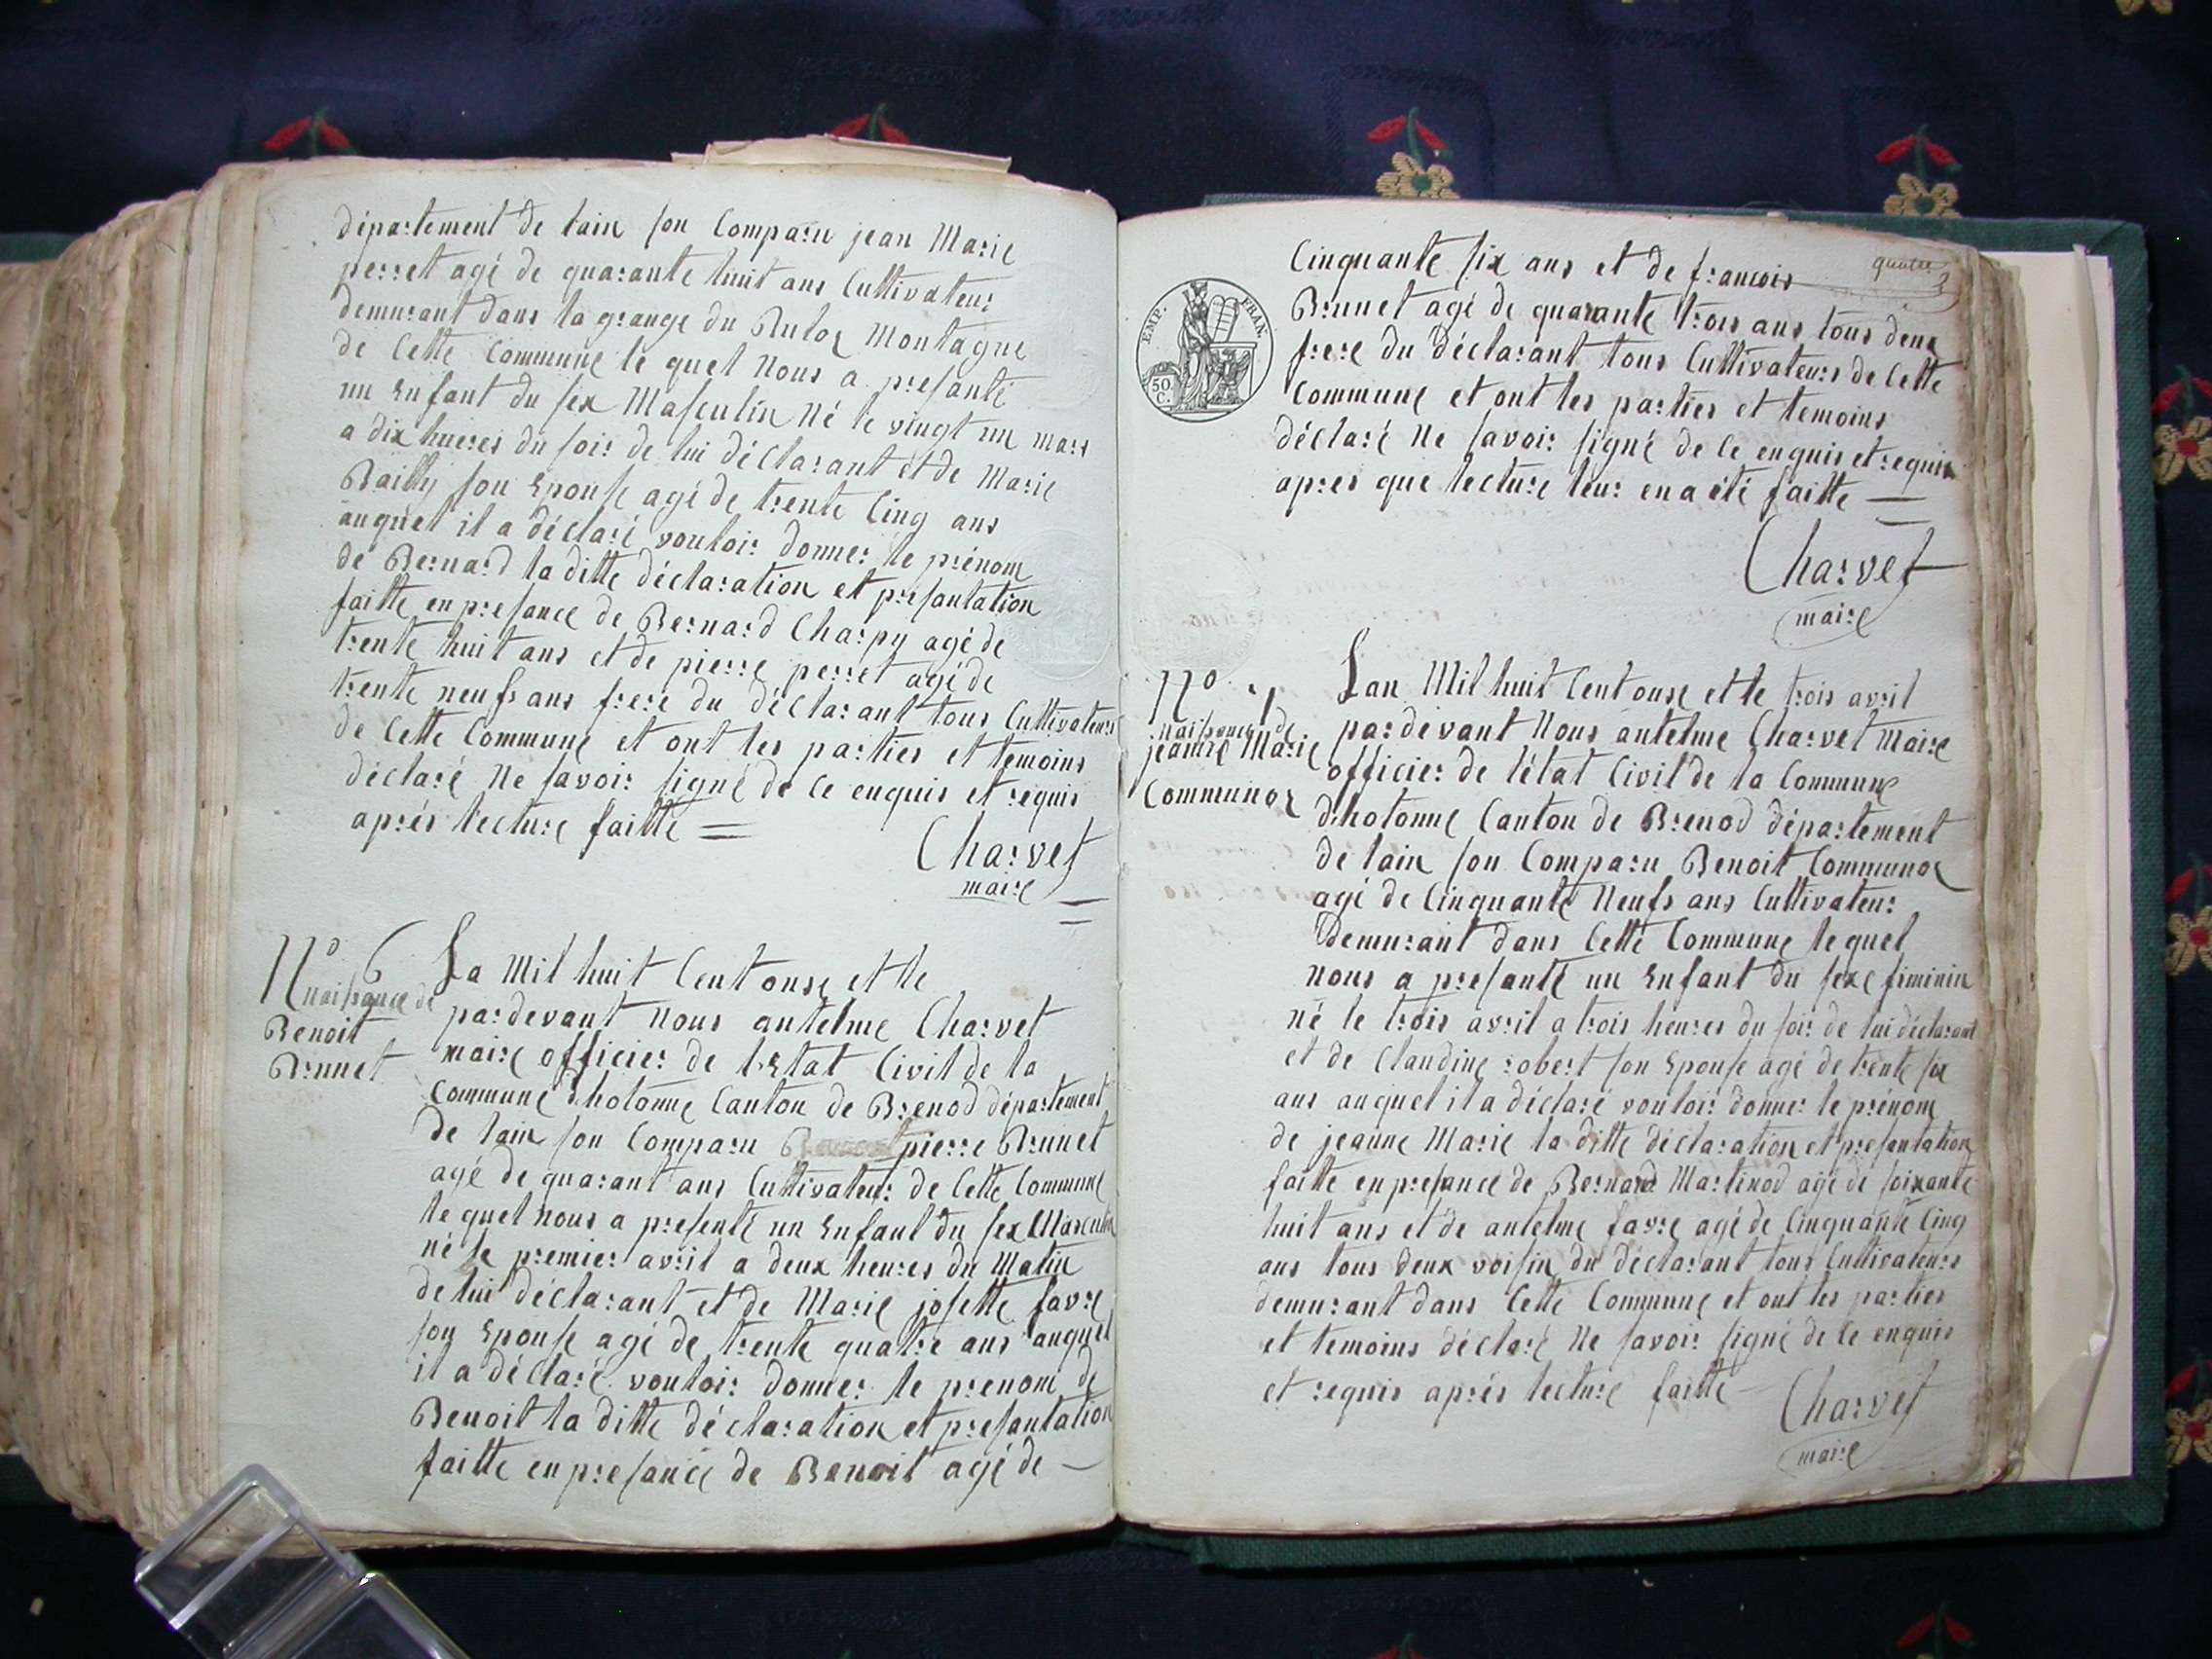 département de lain son Comparu jean Marie
perret agé de quarante huit ans Cultivateur
demurant dans la grange du Ruloz Montagne
de Cette Commune le quel Nous a presanté
un Enfant du sex Masculin Né le vingt un mars
a dix hueres du soir de lui déclarant et de Marie
Bailly son Epouse agé de trente Cinq ans
auquel il a déclaré vouloir donner le prénom
de Bernard la ditte déclaration et presantation
faitte en presance de Bernard Charpy agé de
trente huit ans et de pierre perret agé de
trente neufs ans frere du déclarant tous Cultivateurs
de Cette Commune et ont les parties et temoins
déclaré Ne savoir signé de Ce enquis et requis
aprés lecture faitte =
Charvet
maire
N° 6
naissance de
Benoit
Brunet
La Mil huit Cent onse et le
pardevant Nous antelme Charvet
maire officier de lEtat Civil de la
Commune dhotonne Canton de Brenod département
de lain son Comparu pierre Brunet
agé de quarant ans Cultivateur de Cette Commune
le quel nous a presenté un Enfant du sex Masculin
né le premier avril a deux heures du Matin
de lui déclarant et de Marie josette favre
son Epouse agé de trente quatre ans auquel
il a déclaré vouloir donner le prenom de
Benoit la ditte déclaration et presantation
faitte en presance de Benoit agé de —
EMP. FRAN.
50
C.
Cinquante six ans et de francois
Brunet agé de quarante trois ans tous deux
frere du déclarant tous Cultivateurs de Cette
Commune et ont les parties et temoins
déclaré Ne savoir signé de Ce enquis et requis
apres que lecture leur en a été faitte —
Charvet
maire
N° 7
naissance de
jeanne Marie
Communoz
Lan Mil huit Cent onse et le trois avril
pardevant Nous antelme Charvet Maire
officier de létat Civil de la Commune
dhotonne Canton de Brenod département
de lain son Comparu Benoit Communoz
agé de Cinquante Neufs ans Cultivateur
demurant dans Cette Commune le quel
nous a presanté un Enfant du sexe feminin
né le trois avril a trois heures du soir de lui déclarant
et de Claudine robert son Epouse agé de trente six
ans auquel il a déclaré vouloir donner le prénom
de jeanne Marie la ditte déclaration et presentation
faitte en presance de Bernard Martinod agé de soixante
huit ans et de antelme favre agé de Cinquante Cinq
ans tous deux voisin du déclarant tous Cultivateurs
demurant dans Cette Commune et ont les parties
et temoins déclaré Ne savoir signé de Ce enquis
et requis aprés lecture faitte —
Charvet
maire